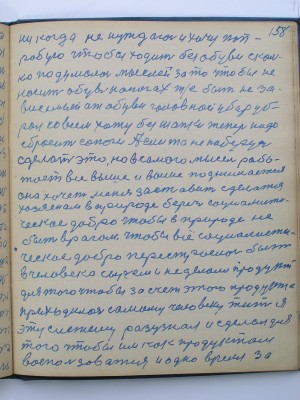 158
никогда не нуждался и хочу поп-
робую чтобы ходить без обуви сколь-
ко подумалось мыслей за то чтобы не
носить обувь на ногах т же быть не за-
висимый от обуви головной убор уб-
рал совсем хожу без шапки теперь надо
сбросить сапоги А если то не побужу
сделать это, но в самого мысль рабо-
тает все выше и выше поднимается
она хочет меня заставить сделаться
хозяином в природе беречь социалисти-
ческое добро чтобы в природе не
быть врагом чтобы всё социалисти-
ческое добро перестроилось быть
в человека слугом и не делали продукт
для того чтобы за счет этого продукта
приходилось самому человеку жить я
эту систему разузнал и сделал для
того чтобы им как продуктом
воспользоваться и одно время за